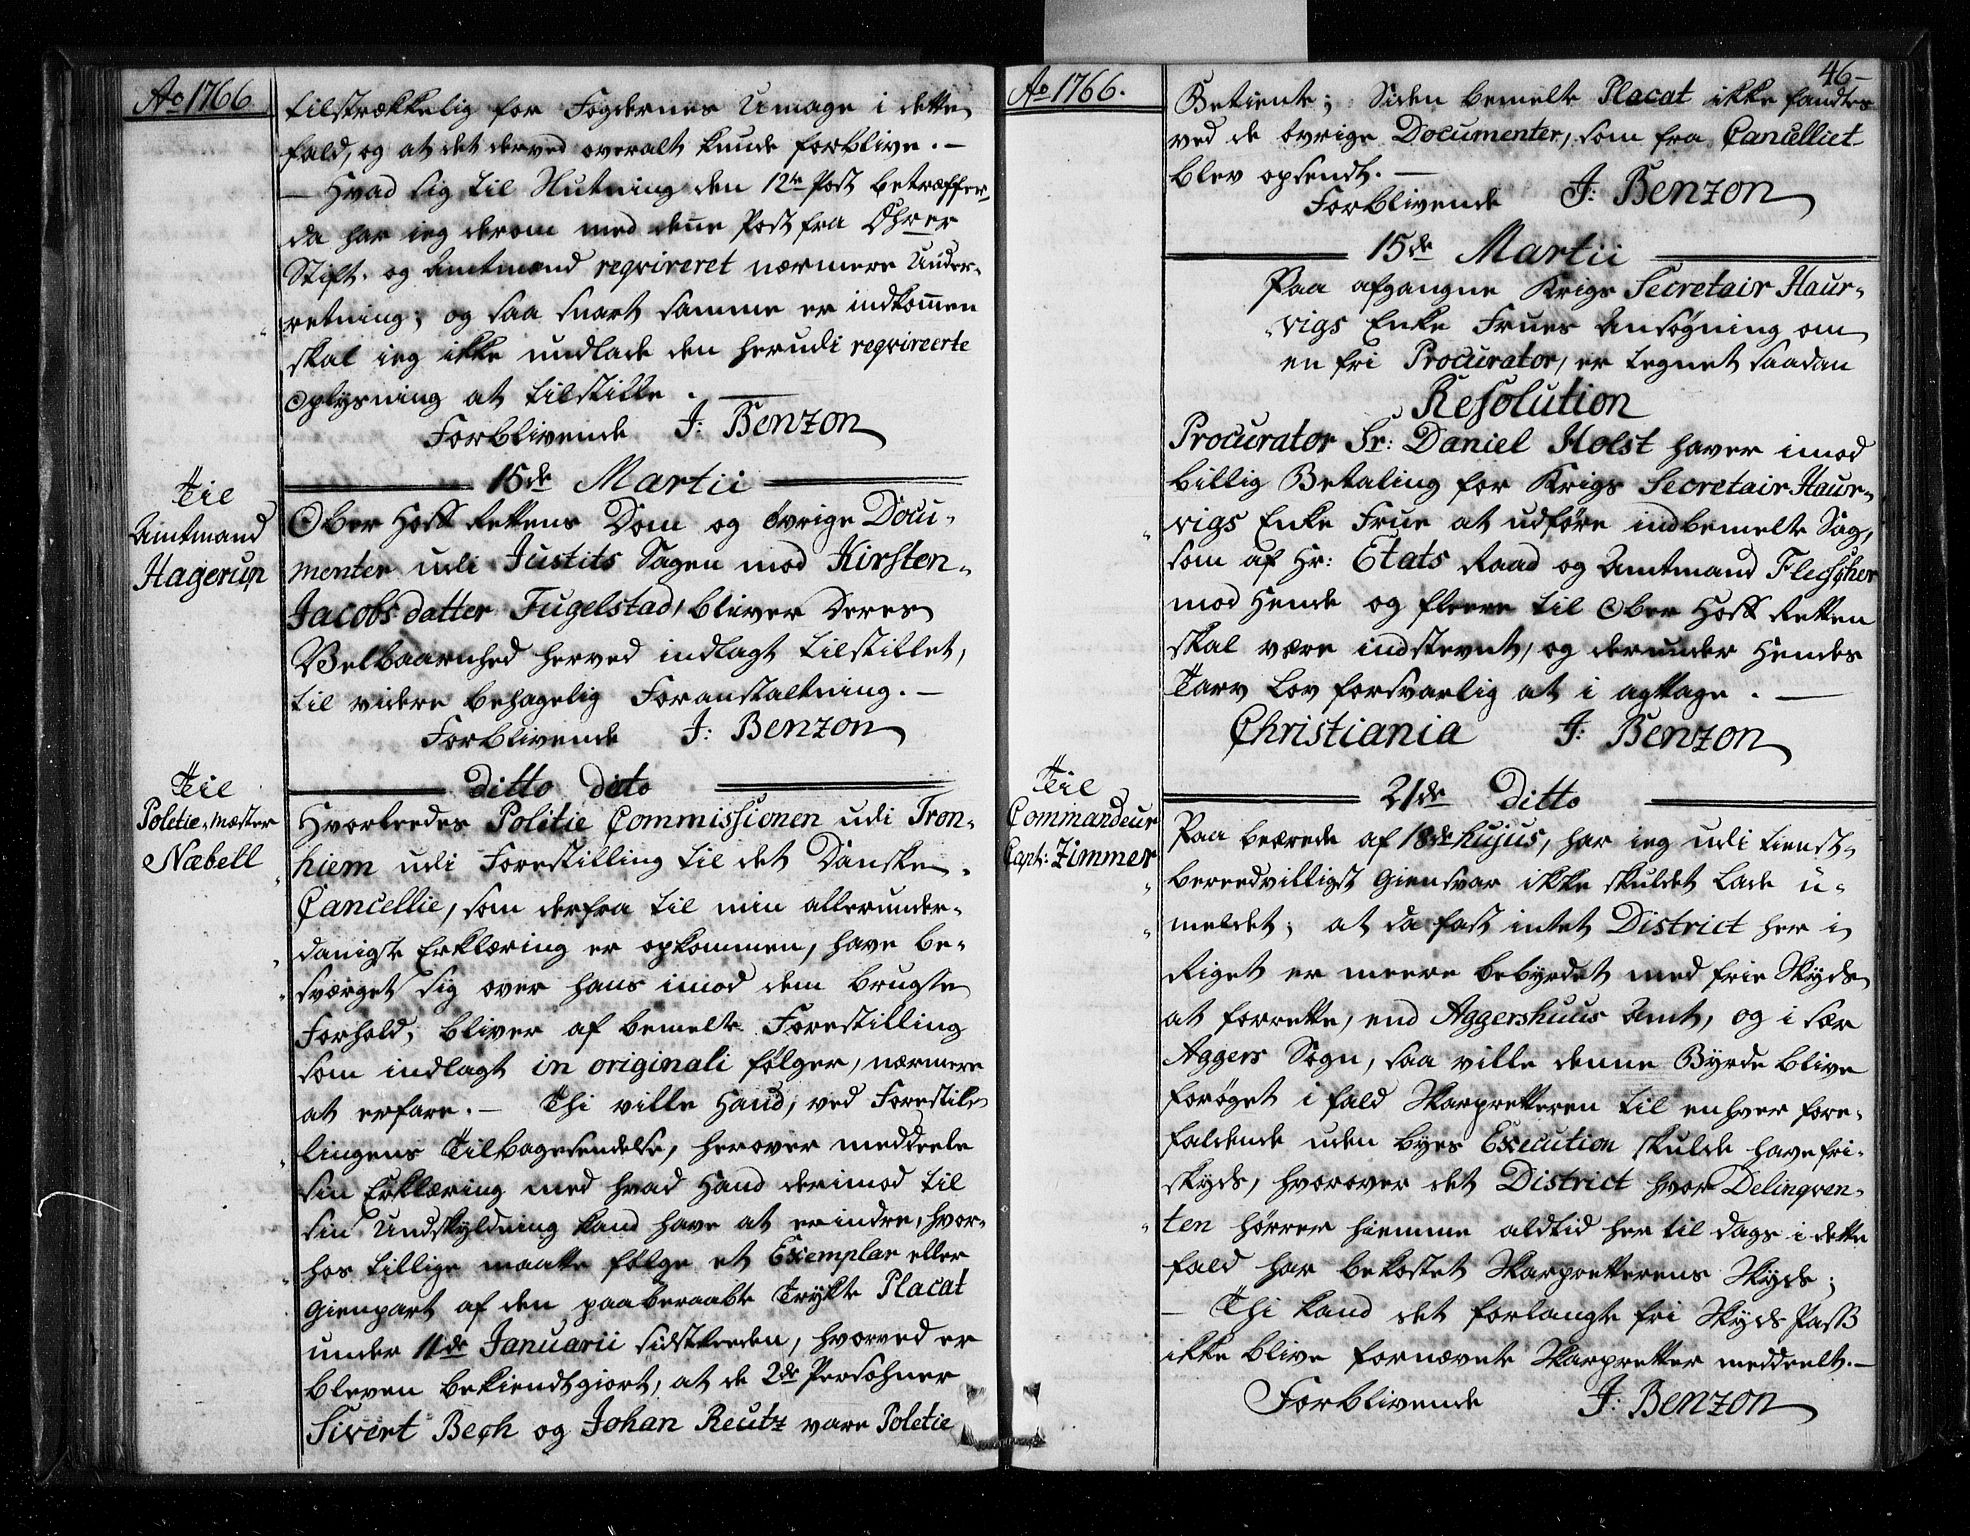 Ao 1766.
tilstrækkelig for Fogdernes Umage i dette
fald, og at det derved overalt kunde forblive. —
— Hvad sig til Slutning den 12te Post betræffer,
da har ieg derom med denne Post fra Ohrer
Stift- og Amtmand reqvireret nærmere Under-
retning; og saa snart samme er indkommen
skal ieg ikke undlade den herudi reqvireerte
Oplysning at tilstille. —
Forblivende J: Benzon
15de Martii
Til
Amtmand
Hagerup
Ober Hoff Rettens Dom og övrige Docu-
menter udi Justits Sagen mod Kirsten
Jacobsdatter Fugelstad, bliver Deres
Velbaarenhed herved indlagt tilstillet,
til videre behagelig Foranstaltning. —
Forblivende J: Benzon
ditto dito
Til
Poletie-mæster
Næbell
Hvorledes Politie Commissionen udi Tron-
hiem udi Forestilling til det Danske
Cancellie, som derfra til min allerunder-
danigste Erklæring er opkommen, have be-
sværget sig over hans imod dem brugte
Forhold, bliver af bemelte Forestilling
som indlagt in originali følger, nærmere
at erfare. — Thi ville Hand, ved Forestil-
lingens Tilbagesendelse, herover meddeele
sin Erklæring med hvad Hand derimod til
sin Undskyldning kand have at erindre, hvor-
hos tillige maatte følge et Exemplar eller
Gienpart af den paaberaabte Trykte Placat
under 11de Januarii sidstleeden, hvorved er
bleven bekiendtgiort, at de 2de Persohner
Sivert Bech og Johan Reutz vare Poletie
Ao 1766.
46-
Betiente; Siden bemelte Placat ikke fandtes
ved de övrige Documenter, som fra Cancelliet
blev opsendt. —
Forblivende J: Benzon
15de Martii
Paa afgangne Krigs Secretair Haur-
vigs Enke Frues Ansøgning om
en fri Procurator, er tegnet saadan
Resolution
Procurator Sr: Daniel Holst haver imod
billig Betaling for Krigs Secretair Haur-
vigs Enke Frue at udføre indbemelte Sag,
som af Hr: Etats Raad og Amtmand Fleischer
mod Hende og fleere til Ober Hoff Retten
skal være indstevnt, og derunder Hendes
Tarv Lov forsvarlig at i agttage. —
Christiania J: Benzon
21de Ditto
Til
Commandeur
Capt: Zimmer
Paa beærede af 18de hujus, har ieg udi tienst-
beredvilligst Giensvar ikke skuldet lade u-
meldet; at da fast intet District her i
Riget er meere bebyrdet med frie Skyds
at forrette, end Aggershuus Amt, og i sær
Aggers Sogn, saa ville denne Byrde blive
forøget i fald Skarpretteren til enhver fore-
faldende uden byes Execution skulde have fri-
skyds, hvorover det District hvor Delinqven-
ten hører hiemme altid her til dags i dette
fald har bekostet Skarpretterens Skyds;
— Thi kand det forlangte fri Skyds Pass
ikke blive fornævnte Skarpretter meddeelt. —
Forblivende J: Benzon